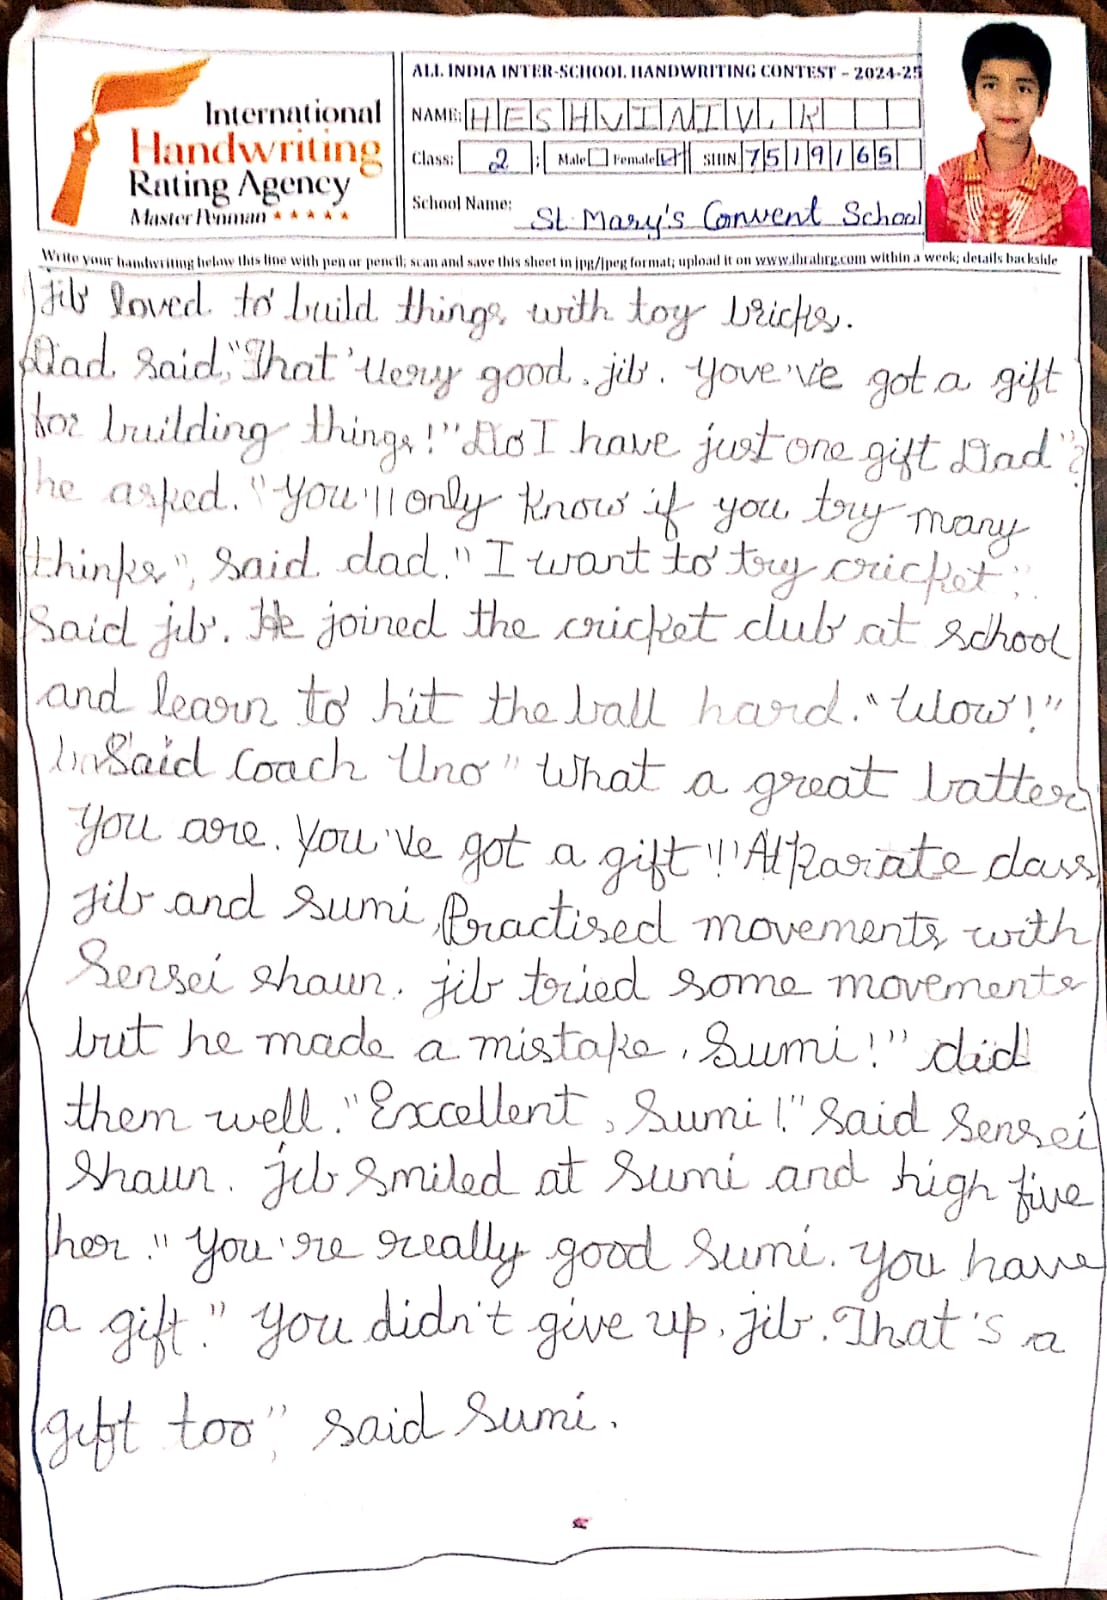 International
Handwriting
Rating Agency
Master Penman
ALL INDIA INTER-SCHOOL HANDWRITING CONTEST - 2024-25
NAME: HESHVINI V. K
Class: 2 Male Female SHN 7519165
School Name: St. Mary's Convent School
Write your handwriting below this line with pen or pencil; scan and save this sheet in jpg/jpeg format; upload it on www.ihrahrg.com within a week; details backside
Jib loved to build things with toy bricks.
Dad said, "That' very good. jib. Yove've got a gift
for building things!" "Do I have just one gift Dad"?
he asked. "You'll only know if you try many
thinks", said dad. "I want to try cricket",
Said jib. He joined the cricket club at school
and learn to hit the ball hard. "Wow!"
Said Coach Uno" What a great batter
you are. You've got a gift"!!' At karate class,
Jib and Sumi, Practised movements with
Sensei Shaun. jib tried some movements
but he made a mistake, Sumi!" did
them well." Excellent, Sumi!" Said Sensei
Shaun. jib smiled at Sumi and high five
her." You're really good Sumi. You have
a gift." You didn't give up, jib. That's a
gift too", said Sumi.